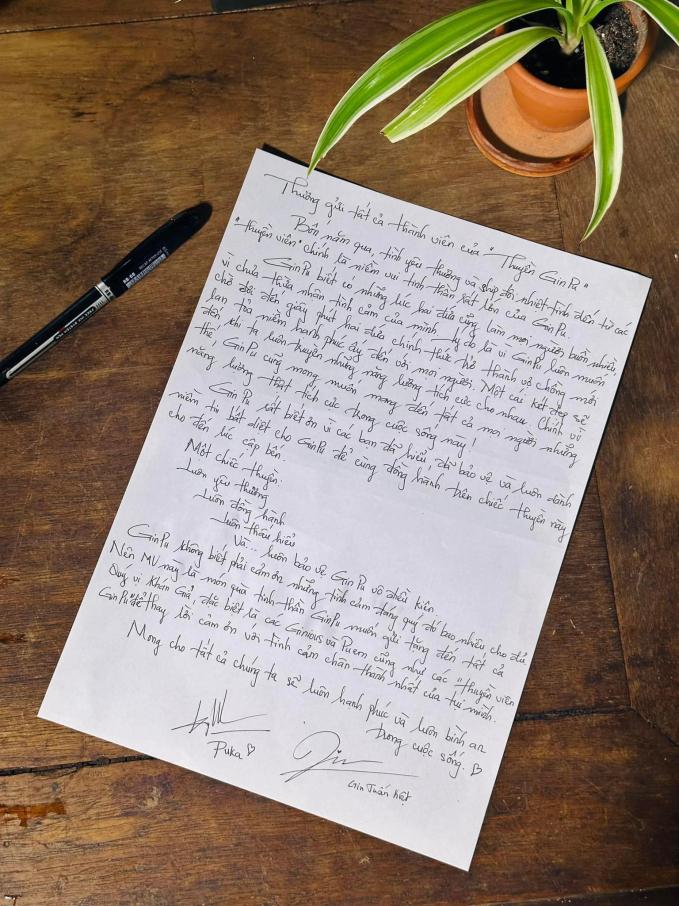 Thương gửi tất cả thành viên của "Thuyền GinPu"
Bốn năm qua, tình yêu thương và ship đôi nhiệt tình đến từ các
"thuyền viên" chính là niềm vui tinh thần rất lớn của GinPu.
GinPu biết có những lúc hai đứa cũng làm mọi người buồn nhiều
vì chưa thừa nhận tình cảm của mình. Lý do là vì GinPu luôn muốn
chờ đợi đến giây phút hai đứa chính thức trở thành vợ chồng mới
lan tỏa niềm hạnh phúc ấy đến với mọi người. Một cái kết đẹp sẽ
đến khi ta luôn truyền những năng lượng tích cực cho nhau. Chính vì
thế, GinPu cũng mong muốn mang đến tất cả mọi người những
năng lượng thật tích cực trong cuộc sống này!
GinPu rất biết ơn vì các bạn đã hiểu, đã bảo vệ và luôn dành
niềm tin bất diệt cho GinPu để cùng đồng hành trên chiếc thuyền này
cho đến lúc cập bến.
Một chiếc thuyền:
Luôn yêu thương
Luôn đồng hành
Luôn thấu hiểu
Và... luôn bảo vệ GinPu vô điều kiện
GinPu không biết phải cảm ơn những tình cảm đáng quý đó bao nhiêu cho đủ.
Nên MV này là món quà tinh thần GinPu muốn gửi tặng đến tất cả
Quý vị Khán Giả, đặc biệt là các Ginious và Puem cũng như các "thuyền viên
GinPu" để thay lời cảm ơn với tình cảm chân thành nhất của tụi mình.
Mong cho tất cả chúng ta sẽ luôn hạnh phúc và luôn bình an
trong cuộc sống.
Puka
Gin Tuấn Kiệt